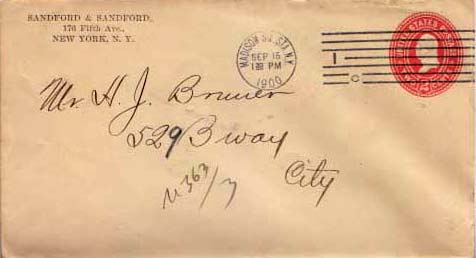 SANDFORD & SANDFORD,
176 Fifth Ave.,
NEW YORK, N. Y.
MADISON SQ. STA. N.Y.
SEP 15
PM
1900
1
C
UNITED STATES
2
Mr. H. J.
529 B'way
City
363/7